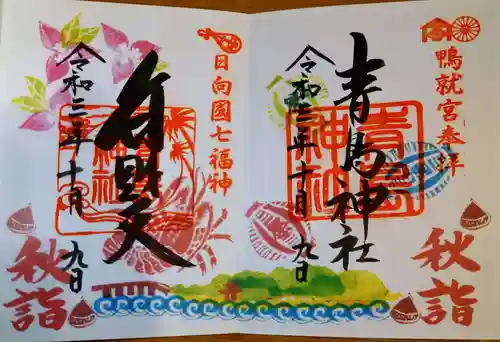 鴨就宮奉拝
青島神社
令和三年十月九日
秋詣
日向國七福神
弁財天
令和三年十月九日
秋詣